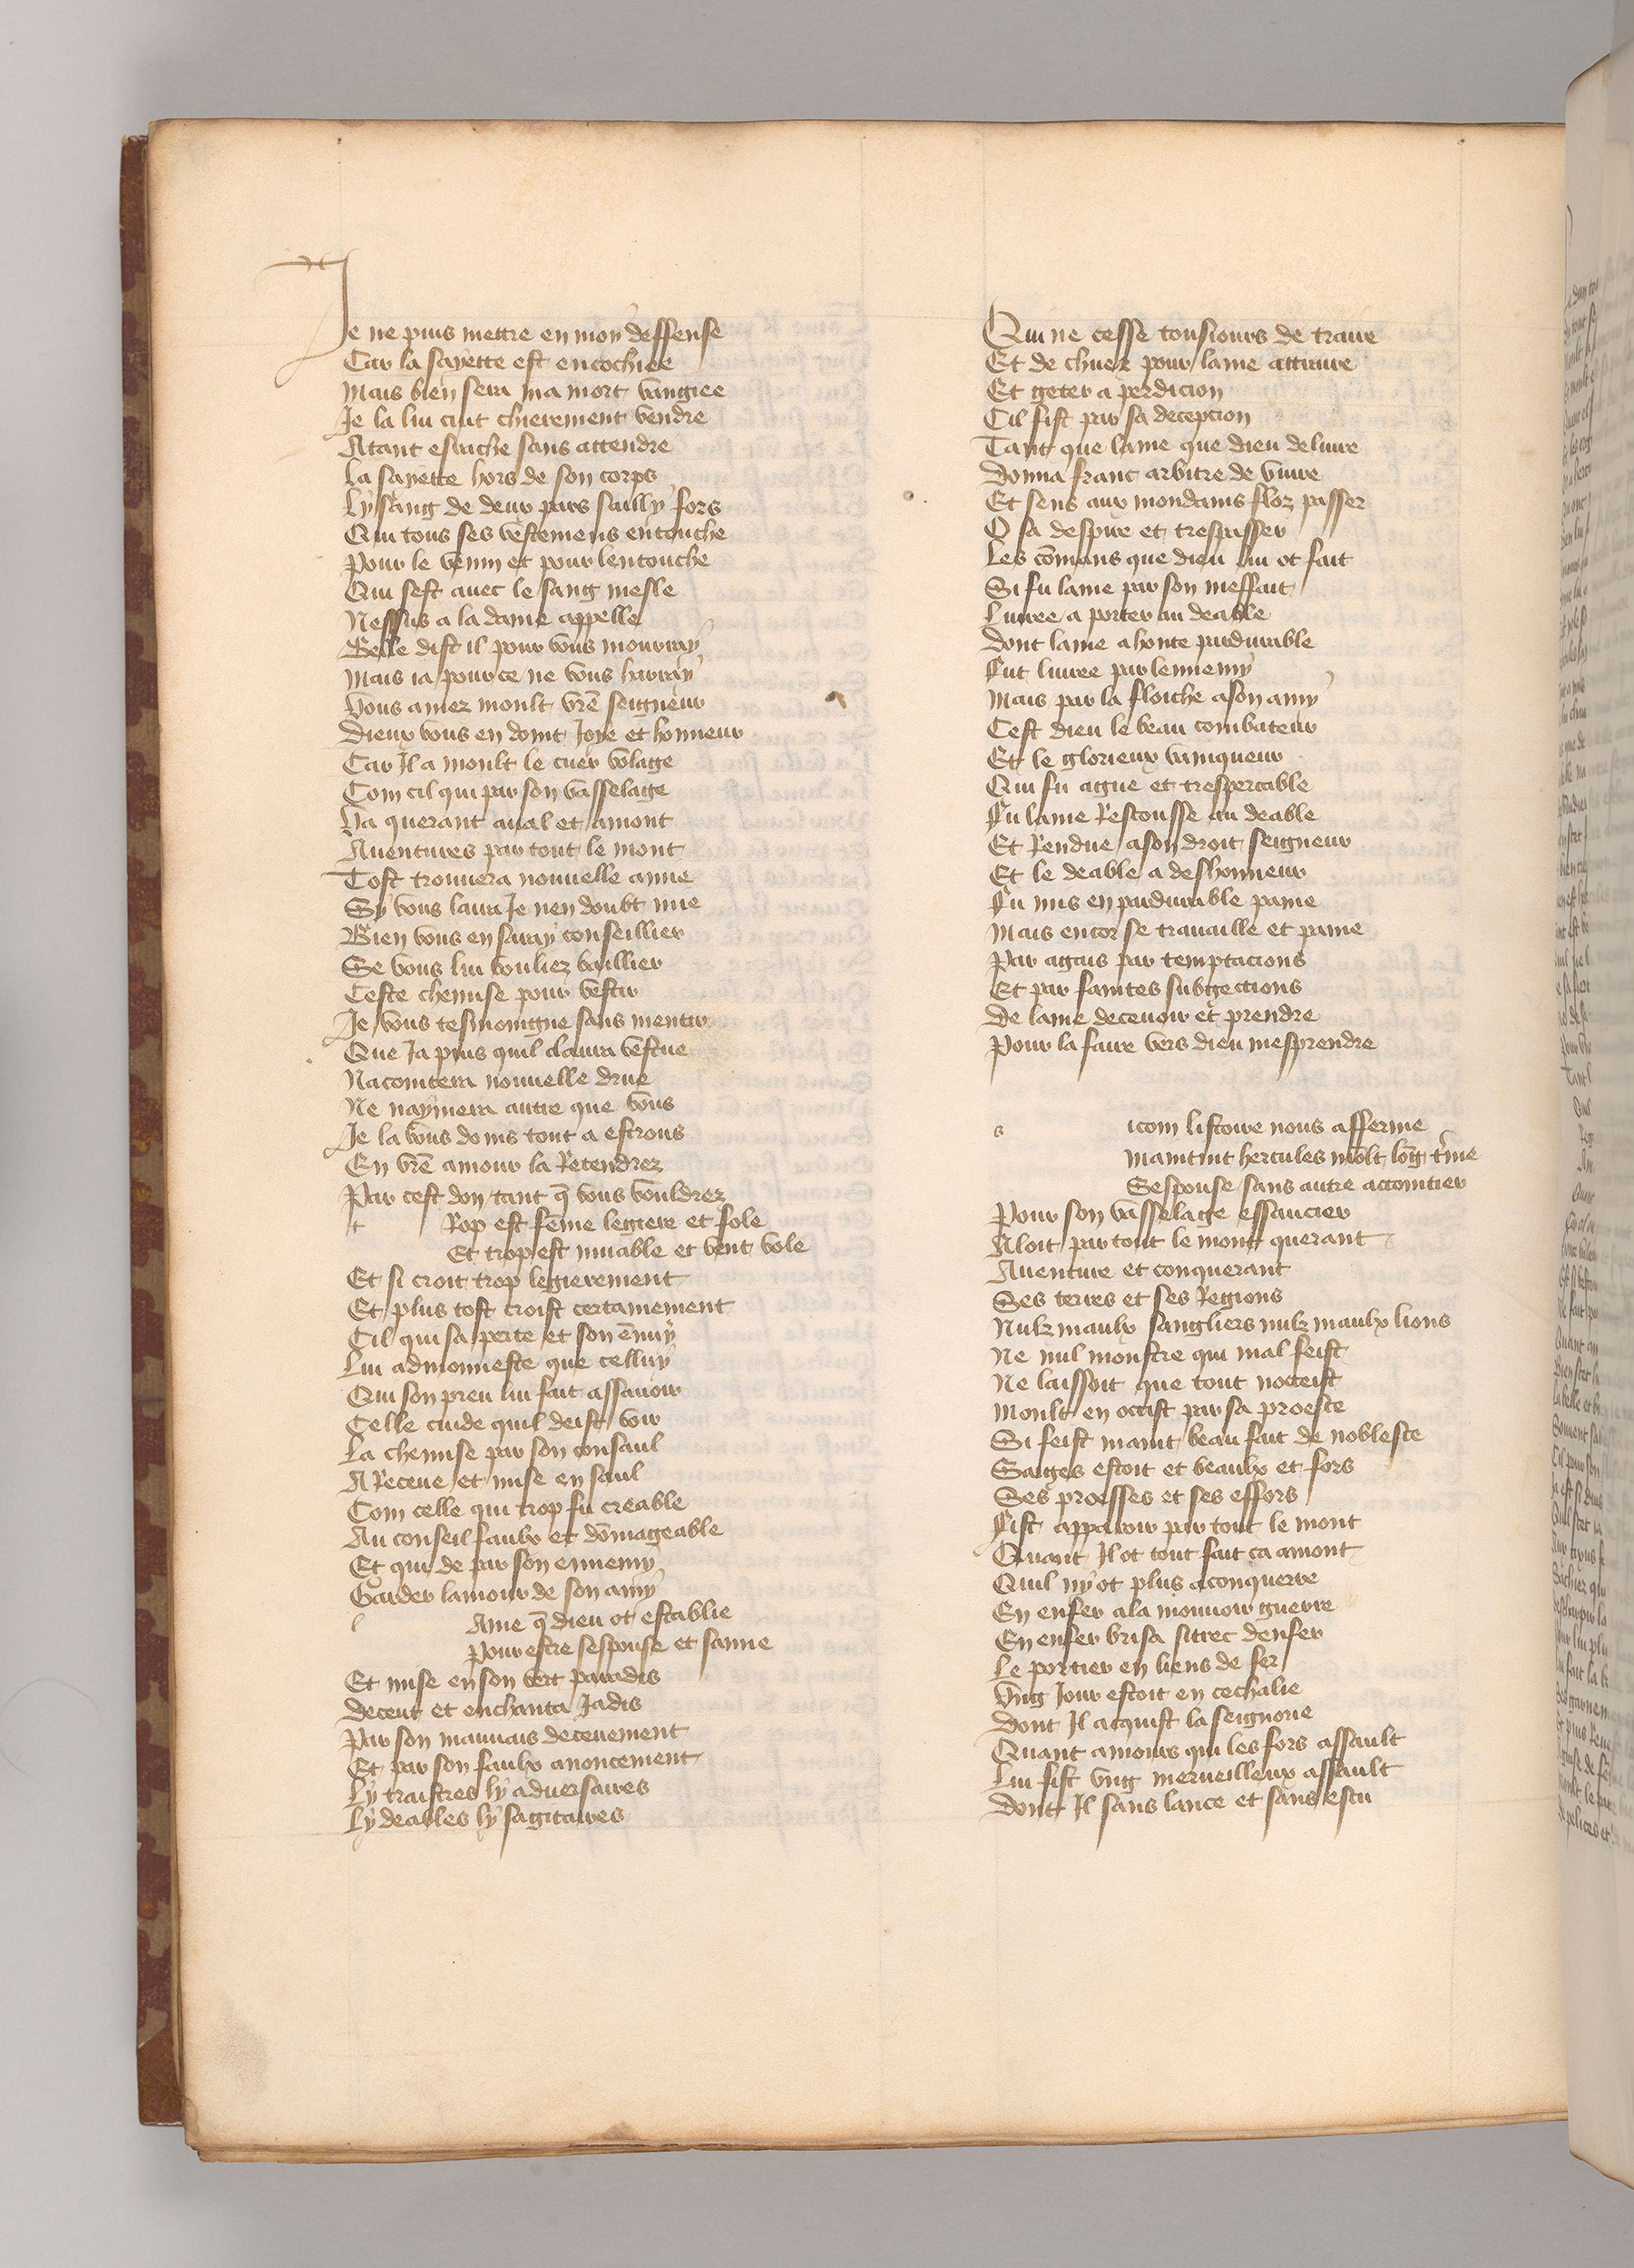 Je ne puis mettre en mon deffense
Car la sayette est encochiee
Mais bien sera ma mort vangiee
Je la lui cuit chierement vendre
Atant esrache sans attendre
La sayette hors de son corps
Ly sang de deux pars sailly fors
Qui tous ses vestemens entouche
Pour le venin et pour lentouche
Qui sest auec le sang mesle
Nessus a la dame appelle
Belle dist il pour vous mourray
Mais ia pour ce ne vous harray
Vous amez moult vre̅ seigneur
Dieux vous en doint Joye et honneur
Car Il a moult le cuer volage
Com cil qui par son vasselage
Va querant aual et amont
Auentures par tout le mont
Tost trouuera nouuelle amie
Sy vous laira Je nen doubt mie
Bien vous en saray conseillier
Se vous lui vouliez baillier
Ceste chemise pour vestir
Je vous tesmoingne sans mentir
Que Ja puis quil laura vestue
Nacointera nouuelle drue
Ne naymera autre que vous
Je la vous doins tout a estrous
En vre̅ amour la Retendrez
Par cest don tant q̅ vous vouldrez
t Rop est fe̅me legiere et fole
Et trop est muable et vent vole
Et si croit trop legierement
Et plus tost croist certainement
Cil qui sa perte et son e̅nuy
Lui admonneste que celluy
Qui son preu lui fait assauoir
Celle cuide quil deist voir
La chemise par son consaul
A Receue et mise en saul
Com celle qui trop fu creable
Au conseil faulx et do̅mageable
Et qui de par son ennemy
Garder lamour de son amy
l Ame q̅ dieu ot establie
Pour estre sespouse et samie
Et mise en son vert paradis
Deceut et enchanta Jadis
Par son mauuais deceuement
Et par son faulx anoncement
Ly traistres ly aduersaires
Ly deables ly sagitaires
Qui ne cesse tousiours de traire
Et de chuer pour lame attraire
Et geter a perdicion
Cil fist par sa decepcion
Tant que lame que dieu deliure
Donna franc arbitre de viure
Et sens aux mondains floz passer
O sa despire et trespasser
Les co̅mans que dieu lui ot fait
Si fu lame par son meffait
Liuree a porter au deable
Dont lame a honte pardurable
Fut liuree par lennemy
Mais par la floiche a son amy
Cest dieu le beau combateur
Et le glorieux vainqueur
Qui fu ague et trespercable
Fu lame Rescousse au deable
Et Rendue a son droit seigneur
Et le deable a deshonneur
Fu mis en pardurable paine
Mais encor se trauaille et paine
Par agais par temptacions
Et par faintes subgections
De lame deceuoir et prendre
Pour la faire vers dieu mesprendre
s icom listoire nous afferme
Maintint hercules mo̅lt lo̅g t̕me
Sespouse sans autre accointier
Pour son vasselage essaucier
Aloit par tout le mont querant
Auenture et conquerant
Ses terres et ses Regions
Nulz maulx sangliers nulz maulx lions
Ne nul monstre qui mal feist
Ne laissoit que tout nocceist
Moult en occist par sa proeste
Si feist maint beau fait de nobleste
Saiges estoit et beaulx et fors
Ses proesses et ses effors
Fist apparoir par tout le mont
Quant Il ot tout fait ca amont
Quil ny ot plus a conquerre
En enfer ala mouuoir guerre
En enfer brisa sitrec denfer
Le portier en liens de fer
Vng Jour estoit en cechalie
Dont Il acquist la seignorie
Quant amours qui les fors assault
Lui fist vng merueilleux assault
Dont Il sans lance et sans escu